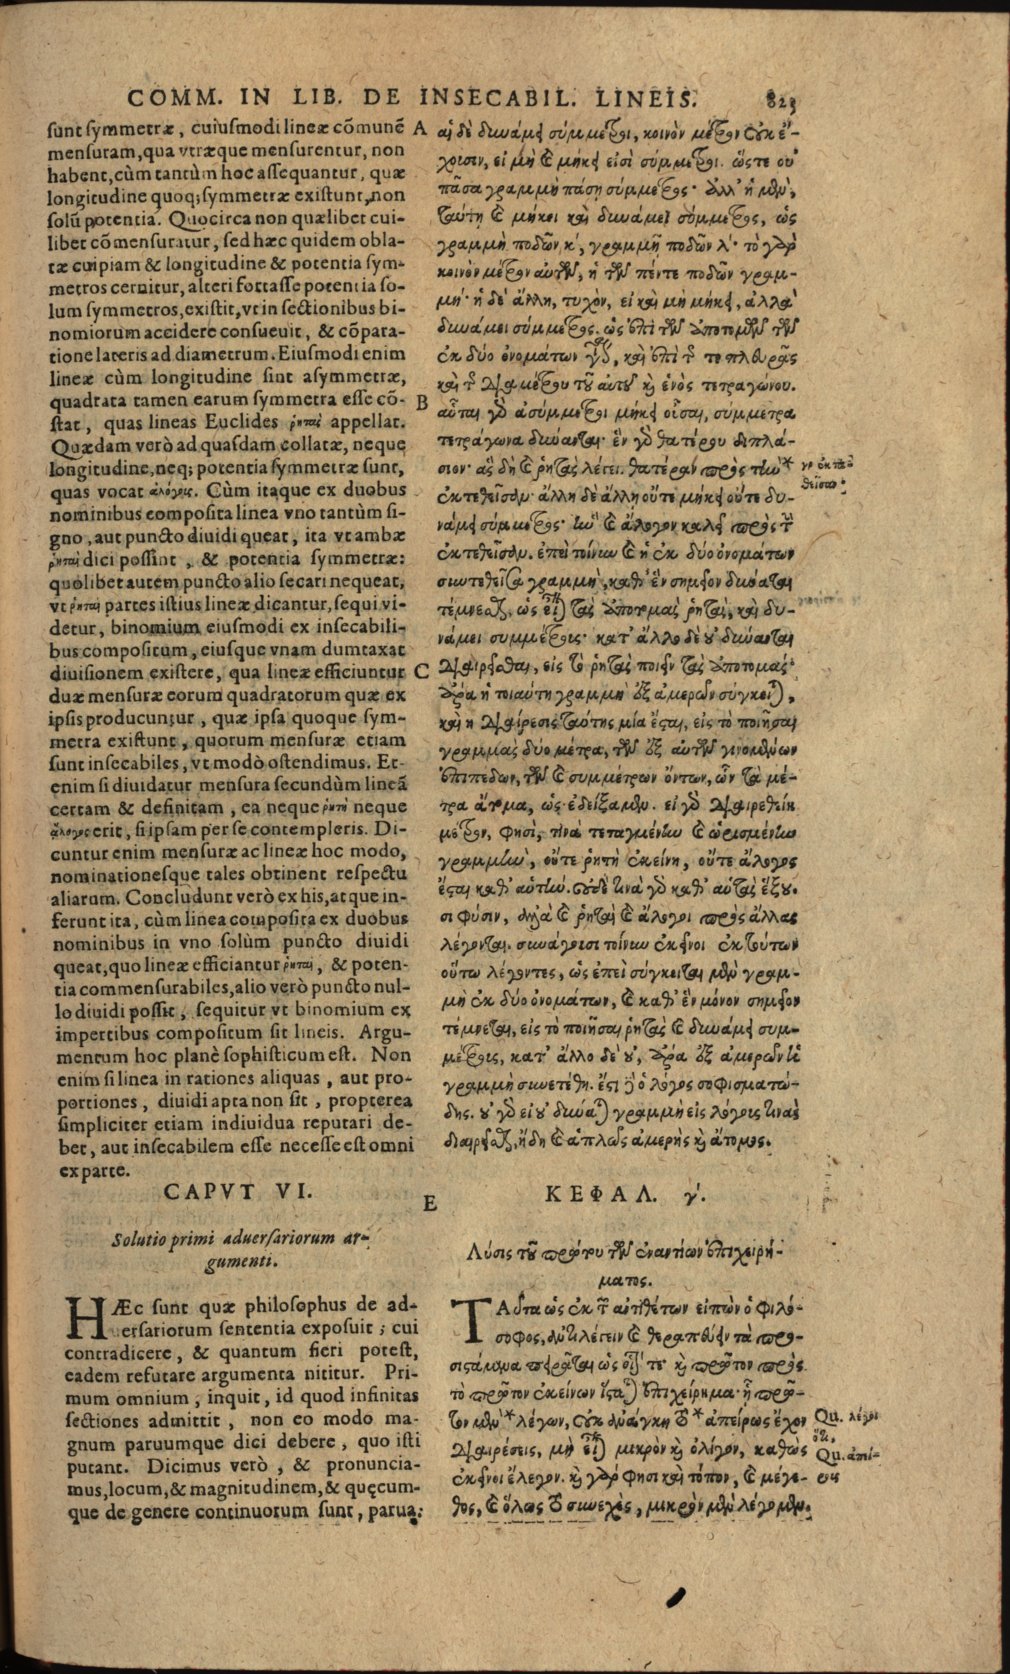 COMM. IN LIB. DE INSECABIL. LINEIS. 823
sunt symmetræ, cuiusmodi lineæ cõmunē
mensuram, qua vtræque mensurentur, non
habent, cùm tantùm hoc assequantur, quæ
longitudine quoq; symmetræ existunt, non
solũ potentia. Quocirca non quælibet cui-
libet cõmensuratur, sed hæc quidem obla-
tæ cuipiam & longitudine & potentia sym-
metros cernitur, alteri fortasse potentia so-
lum symmetros, existit, vt in sectionibus bi-
nomiorum accidere consueuit, & cõpara-
tione lateris ad diametrum. Eiusmodi enim
lineæ cùm longitudine sint asymmetræ,
quadrata tamen earum symmetra esse cõ-
stat, quas lineas Euclides ῥηταὶ appellat.
Quædam verò ad quasdam collatæ, neque
longitudine, neq; potentia symmetræ sunt,
quas vocat ἀλόγοις. Cùm itaque ex duobus
nominibus composita linea vno tantùm si-
gno, aut puncto diuidi queat, ita vt ambæ
ῥηταὶ dici possint, & potentia symmetræ:
quolibet autem puncto alio secari nequeat,
vt ῥηταὶ partes istius lineæ dicantur, sequi vi-
detur, binomium eiusmodi ex insecabili-
bus compositum, eiusque vnam dumtaxat
diuisionem existere, qua lineæ efficiuntur
duæ mensuræ eorum quadratorum quæ ex
ipsis producuntur, quæ ipsa quoque sym-
metra existunt, quorum mensuræ etiam
sunt insecabiles, vt modò ostendimus. Et-
enim si diuidatur mensura secundùm lineã
certam & definitam, ea neque ῥητὴ neque
ἄλογος erit, si ipsam per se contempleris. Di-
cuntur enim mensuræ ac lineæ hoc modo,
nominationesque tales obtinent respectu
aliarum. Concludunt verò ex his, atque in-
ferunt ita, cùm linea composita ex duobus
nominibus in vno solùm puncto diuidi
queat, quo lineæ efficiantur ῥηταὶ, & poten-
tia commensurabiles, alio verò puncto nul-
lo diuidi possit, sequitur vt binomium ex
impertibus compositum sit lineis. Argu-
mentum hoc planè sophisticum est. Non
enim si linea in rationes aliquas, aut pro-
portiones, diuidi apta non sit, propterea
simpliciter etiam indiuidua reputari de-
bet, aut insecabilem esse necesse est omni
ex parte.
CAPVT VI.
Solutio primi aduersariorum ar-
gumenti.
HÆc sunt quæ philosophus de ad-
uersariorum sententia exposuit; cui
contradicere, & quantum fieri potest,
eadem refutare argumenta nititur. Pri-
mum omnium, inquit, id quod infinitas
sectiones admittit, non eo modo ma-
gnum paruumque dici debere, quo isti
putant. Dicimus verò, & pronuncia-
mus, locum, & magnitudinem, & quęcum-
que de genere continuorum sunt, parua;
A
B
C
E
αἱ δὲ δυνάμει σύμμετροι, κοινὸν μέτρον οὐκ ἔ-
χουσιν, εἰ μὴ καὶ μήκει εἰσὶ σύμμετροι. ὥστε οὐ
πᾶσα γραμμὴ πάσῃ σύμμετρος· ἀλλ' ἡ μὲν,
ταύτῃ καὶ μήκει καὶ δυνάμει σύμμετρος, ὡς
γραμμὴ ποδῶν κ', γραμμῇ ποδῶν λ'· τὸ γὰρ
κοινὸν μέτρον αὐτῶν, ἡ τῶν πέντε ποδῶν γραμ-
μή· ἡ δὲ ἄλλη, τυχὸν, εἰ καὶ μὴ μήκει, ἀλλὰ
δυνάμει σύμμετρος. ὡς ἐπὶ τῶν ἀποτομῶν τῶν
ἐκ δύο ὀνομάτων ἔχει, καὶ ἐπὶ τῆς τε πλευρᾶς
καὶ τῆς διαμέτρου τοῦ αὐτοῦ καὶ ἑνὸς τετραγώνου.
αὗται γὰρ ἀσύμμετροι μήκει οὖσαι, σύμμετρα
τετράγωνα δύνανται· ἓν γὰρ θατέρου διπλά-
σιον· ἃς δὴ καὶ ῥητὰς λέγει. θατέραν πρὸς τὴν *
ἐκτεθεῖσαν· ἄλλη δὲ ἄλλῃ οὔτε μήκει οὔτε δυ-
νάμει σύμμετρος· ἣν καὶ ἄλογον καλεῖ πρὸς τὴν
ἐκτεθεῖσαν. ἐπεὶ τοίνυν καὶ ἡ ἐκ δύο ὀνομάτων
συντεθεῖσα γραμμὴ, καθ' ἓν σημεῖον δύναται
τέμνεσθαι, ὡς εἶναι τὰς ἀποτομὰς ῥητὰς, καὶ δυ-
νάμει συμμέτρους· κατ' ἄλλο δὲ οὐ δύναται
διαιρεῖσθαι, εἰς τὸ ῥητὰς ποιεῖν τὰς ἀποτομάς·
ἄρα ἡ τοιαύτη γραμμὴ ἐξ ἀμερῶν σύγκειται,
καὶ ἡ διαίρεσις ταύτης μία ἐστὶ, εἰς τὸ ποιῆσαι
γραμμὰς δύο μέτρα, τῶν ἐξ αὐτῶν γινομένων
ἐπιπέδων, τῶν καὶ συμμέτρων ὄντων, ὧν τὰ μέ-
τρα ἄτομα, ὡς ἐδείξαμεν. εἰ γὰρ διαιρεθείη
μέτρον, φησὶ, τινὰ τεταγμένην καὶ ὡρισμένην
γραμμὴν, οὔτε ῥητὴ ἐκείνη, οὔτε ἄλογος
ἔσται καθ' αὑτήν. οὐδὲ τινὰ γὰρ καθ' αὑτὰς ἔξου-
σι φύσιν, ἀλλὰ καὶ ῥηταὶ καὶ ἄλογοι πρὸς ἄλλας
λέγονται. συνάγουσι τοίνυν ἐκεῖνοι ἐκ τούτων
οὕτω λέγοντες, ὡς ἐπεὶ σύγκειται μὲν γραμ-
μὴ ἐκ δύο ὀνομάτων, καὶ καθ' ἓν μόνον σημεῖον
τέμνεται, εἰς τὸ ποιῆσαι ῥητὰς καὶ δυνάμει συμ-
μέτρους, κατ' ἄλλο δὲ οὐ, ἄρα ἐξ ἀμερῶν ἡ
γραμμὴ συνετέθη. ἔστι δὲ ὁ λόγος σοφισματώ-
δης. οὐ γὰρ εἰ οὐ δύναται γραμμὴ εἰς λόγους τινὰς
διαιρεῖσθαι, ἤδη καὶ ἁπλῶς ἀμερὴς καὶ ἄτομος.
ΚΕΦΑΛ. ϛ'.
Λύσις τοῦ πρώτου τῶν ἐναντίων ἐπιχειρή-
ματος.
ΤΑῦτα ὡς ἐκ τῶν ἀντιθέτων εἰπὼν ὁ φιλό-
σοφος, ἀντιλέγειν καὶ θεραπεύειν τὰ προ-
σιστάμενα πειρᾶται ὡς οἷόν τε· καὶ πρῶτον πρὸς
τὸ πρῶτον ἐκείνων ἵσταται ἐπιχείρημα· ᾗ πρῶ-
τον μὲν * λέγων, οὐκ ἀνάγκη τὸ * ἀπείρως ἔχον
διαιρέσεις, μὴ εἶναι μικρὸν καὶ ὀλίγον, καθὼς
ἐκεῖνοι ἔλεγον. καὶ γὰρ φησὶ καὶ τόπον, καὶ μέγε-
θος, καὶ ὅλως τὸ συνεχὲς, μικρὸν μὲν λέγομεν.
γρ. ἐκτε-
θεῖσαν·
Qu. λέγει
ὅτι.
Qu. ἀπεί-
ρους